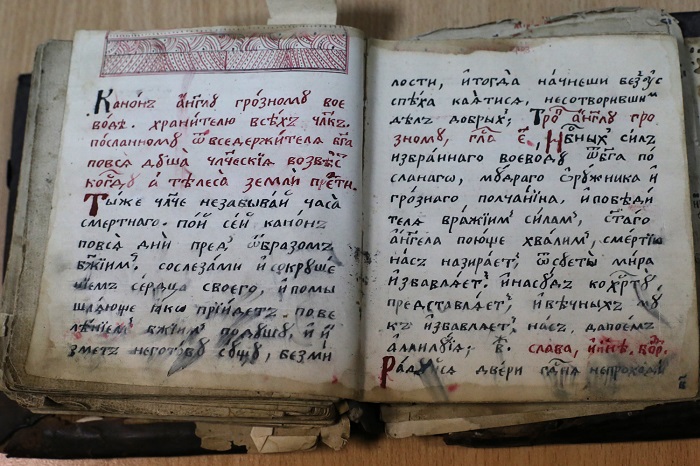 Канонъ а҆́нг҃лꙋ гро́зномꙋ вое
во́дѣ. хранителю всѣ́хъ чл҃къ.
по́сланномꙋ ѿ вседержи́теля бг҃а
повсѧ̀ дꙋшѧ̀ чл҃ческїѧ
а̀ тѣлеса̀ землѝ
Ты́же чл҃че незабыва́й часа̀
сме́ртнаго. по́й се́й кано́нъ
повсѧ̀ дни̑ пред ѡ҆бразомъ
бж҃їим. сослеза́ми и҆сокрꙋше
нїемъ се́рдца своего̀, и҆помы
шлѧ́юще ꙗ҆́кѡ прїи́детъ. пове
лѣ́нїем бж҃їим подꙋшꙋ, и҆и
зметъ негото́вꙋ сꙋщꙋ, безми
лости, и҆тогда̀ на́чнеши без̾ꙋс
пѣ́ха ка́ѧтисѧ, несотвори́вшим
дѣ́лъ до́брых; Тро҇ а҆́нг҃лꙋ гро
зномꙋ, гла҇ є҃, Нб҃ных си́лъ
и҆збра́ннаго воево́дꙋ ѿбг҃а по
сланаго, мꙋ́драго ѻ҆рꙋ́жника и҆
гро́знаго полча́нїна, и҆повѣди́
телѧ вра́жїим си́лам, ст҃а́го
а҆́нгела пою́ще хва́лим, сме́ртїю
на́съ назира́ет, ѿсꙋеты̀ ми́ра
и҆збавлѧ́ет. и҆насꙋ́дъ кохр҇тꙋ̀
представлѧ́ет, и҆вѣ́чных мꙋ
къ и҆збавлѧ́ет, на́съ, дапое́мъ
аллилꙋ́їѧ; в҃. сла́ва, и҆ны́нѣ,
две́ри непроходи